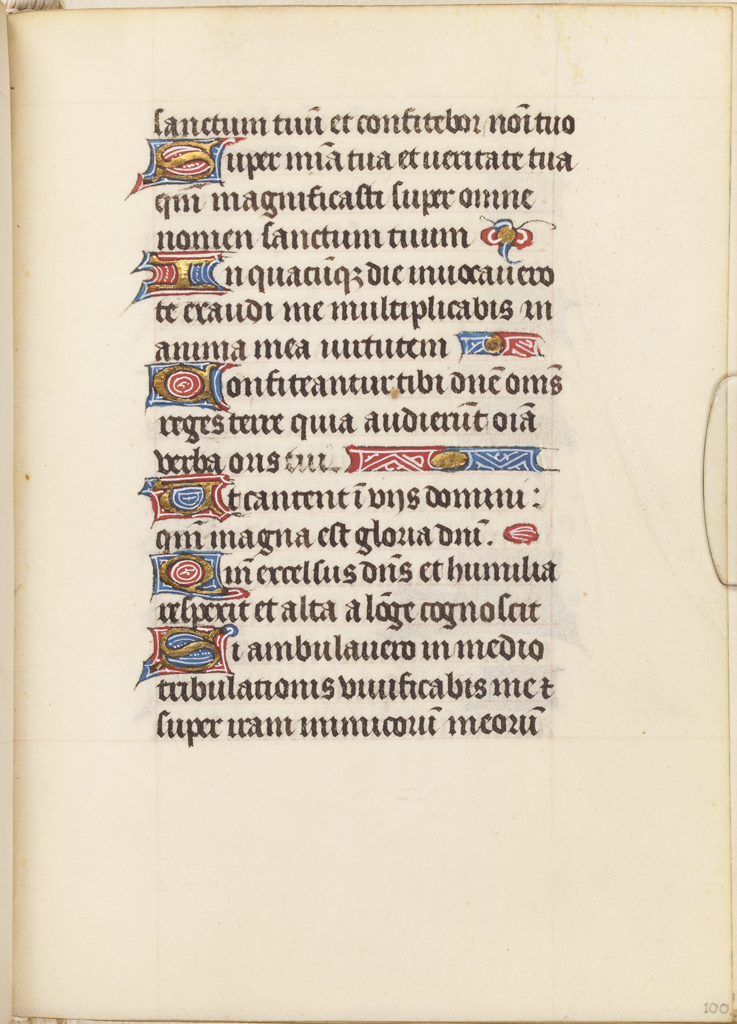 sanctum tuū et confitebor nōi tuo
Super mīa tua et ueritate tua
qm̄ magnificasti super omne
nomen sanctum tuum
In quacūqꝫ die inuocauero
te exaudi me multiplicabis in
anima mea uirtutem
Confiteantur tibi dnē om̄s
reges terre quia audierūt oīa
verba oris tui.
Et cantent ī vijs domini:
qm̄ magna est gloria dnī.
Qm̄ excelsus dn̄s et humilia
respexit et alta a lōge cognoscit
Si ambulauero in medio
tribulationis viuificabis me ⁊
super iram inimicorū meorū
100